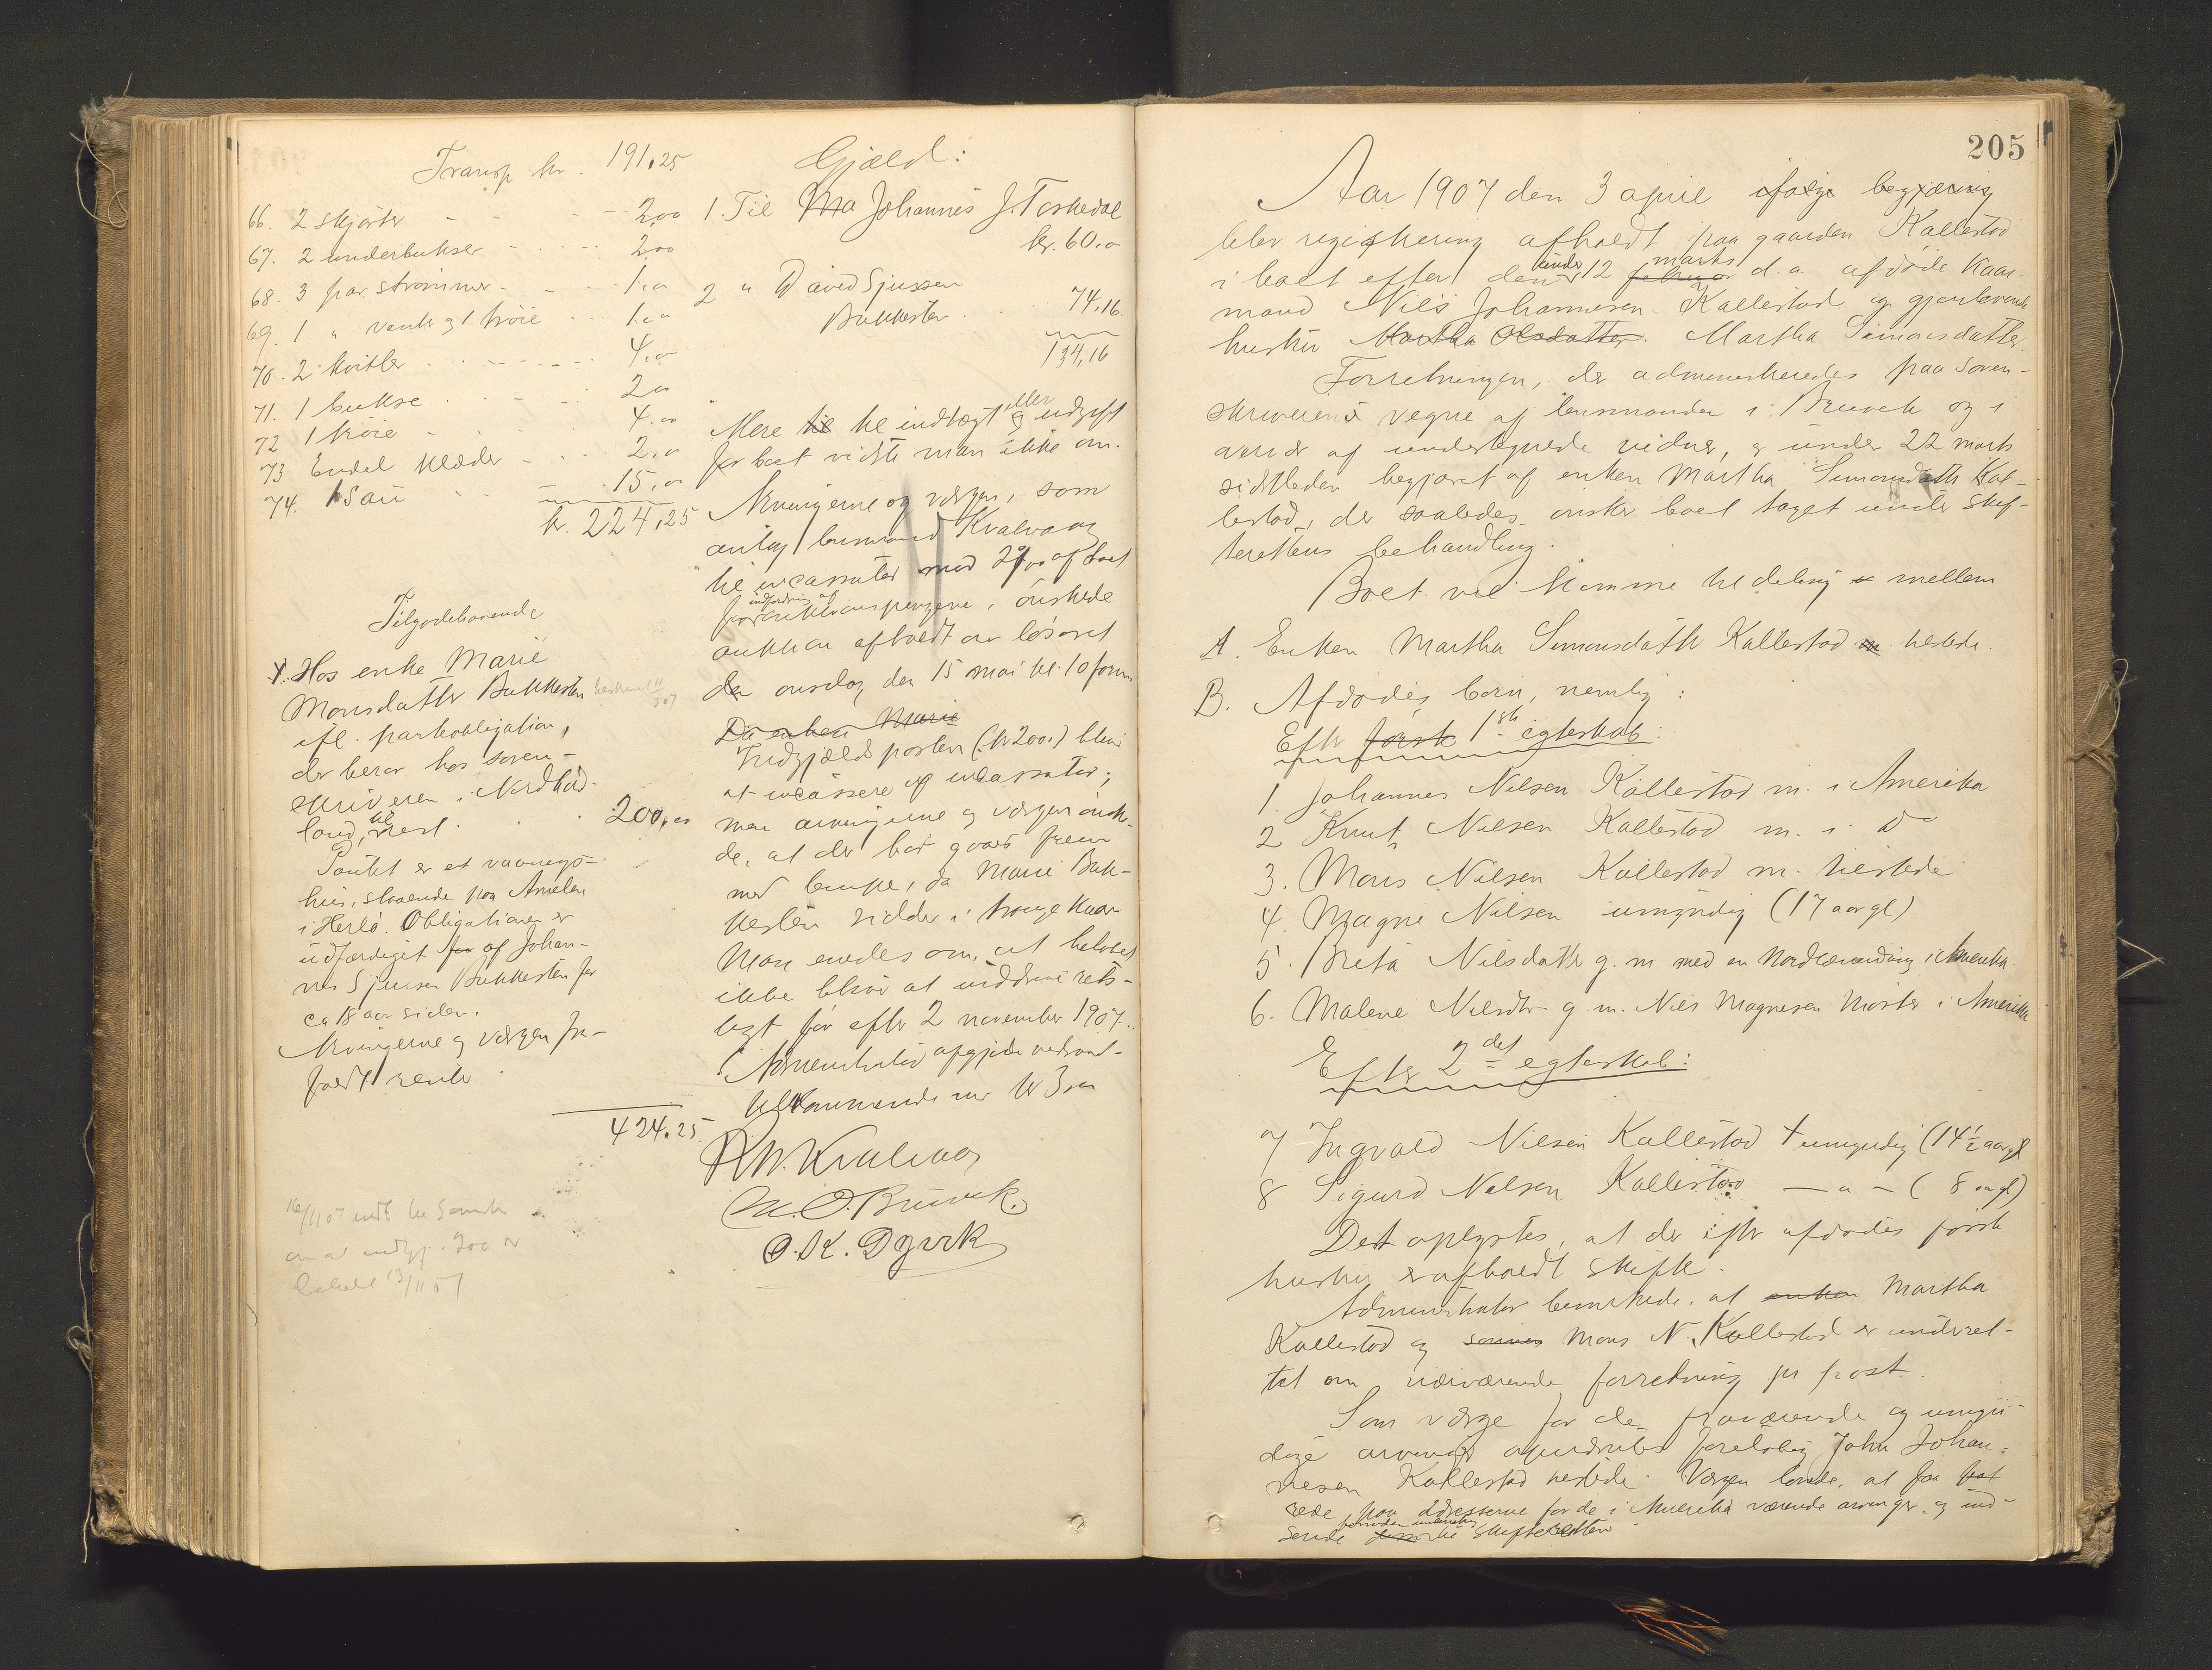 Transp kr. 191.25
66. 2 skjorter - - - 2.00
67. 2 underbukser - - - 2.00
68. 3 par strømmer - - 1.00
69. 1 " vanter og 1 trøie - - 1.00
70. 2 kvitler - - - 4.00
71. 1 bukse - - 2.00
72 1 trøie - - 4.00
73 Endel klæder - - 2.00
74. 1 sau - - 15.00
kr. 224.25
Tilgodehavende
1. Hos enke Marie
Monsdatter Bukkesten
ifl. panteobligation,
der beror hos soren-
skriveren i Nordhord-
land, rest . . . 200.00
Pantet er et vaanings-
hus, staaende paa Amelen
i Herlø. Obligationen er
udfærdiget for af Johan-
nes Sjursen Bukkesten for
ca 18 aar siden.
Arvingerne og værgen fra-
faldt rente.
424.25
Gjæld:
1. Til Ma Johannes J. Toskedal
kr. 60.00
2 " David Sjursen
Bukkesten . . 74.16.
134,16
Mere til til indtægt og eller udgift
for boet vidste man ikke om.
Arvingerne og værgen, som
antog lensmand Kvalvaag
til incassator mod 2% af boet
for indfordring af auktionspengene, ønskede
auktion afholdt over løsøret
den onsdag den 15 mai kl. 10 form.
Da enken Marie
Indgjældsposten (kr 200.) bliver
at incassere af incassator;
men arvingerne og værgen ønske-
de, at der bør gaaes frem
med lempe, da Marie Buk-
kesten sidder i trange kaar
Man enedes om, at beløbet
ikke bliver at inddrive rets-
ligt før efter 2 november 1907.
Administrator afgjorde vedved-
kommende med kr 3.00
R. N. Kvalvaag
M. O. Brurok.
O. K. Dyrvik
205
Aar 1907 den 3 april ifølge begjæring
blev registrering afholdt paa gaarden Kallestad
i boet efter den under 12 februar marts d. a. afdøde kaar-
mand Nils Johannesen Kallestad og gjenlevende
hustru Martha Olsdatter. Martha Simonsdatter.
Forretningen, der administreredes paa soren-
skriverens vegne af lensmanden i Bruvik og i
overvær af undertegnede vidner, er under 22 marts
sidstleden begjæret af enken Martha Simonsdatter Kal-
lestad, der saaledes ønsker boet taget under skif-
terettens behandling.
Boet vil komme til deling mellem
A. Enken Martha Simonsdatter Kallestad m. tilstede.
B. Afdødes børn, nemlig:
Efter første 1ste egteskab:
1. Johannes Nilsen Kallestad m. i Amerika
2 Knut Nilsen Kallestad m. i do
3. Mons Nilsen Kallestad m. tilstede
4. Magne Nilsen umyndig (17 aar gl)
5. Brita Nilsdatter g. m. med en Nordlænding i Amerika.
6. Malene Nilsdtr g. m. Nils Magnesen Moster i Amerika
Efter 2det egteskab:
7 Ingvald Nilsen Kallestad umyndig (14½ aar gl)
8 Sigurd Nilsen Kallestad — " — (8 aar gl)
Det oplystes, at der efter afdødes første
hustru er afholdt skifte.
Administrator bemærkede, at enken Martha
Kallestad og sønnen Mons N. Kallestad er underret-
tet om nærværende forretning pr post.
Som værge for de fraværende og umyn-
dige arvinger opnævntes foreløbig John Johan-
nesen Kallestad tilstede. Værgen lovede, at faa fat
rede paa adresserne for de i Amerika værende arvinger og ind-
sende til skifteretten